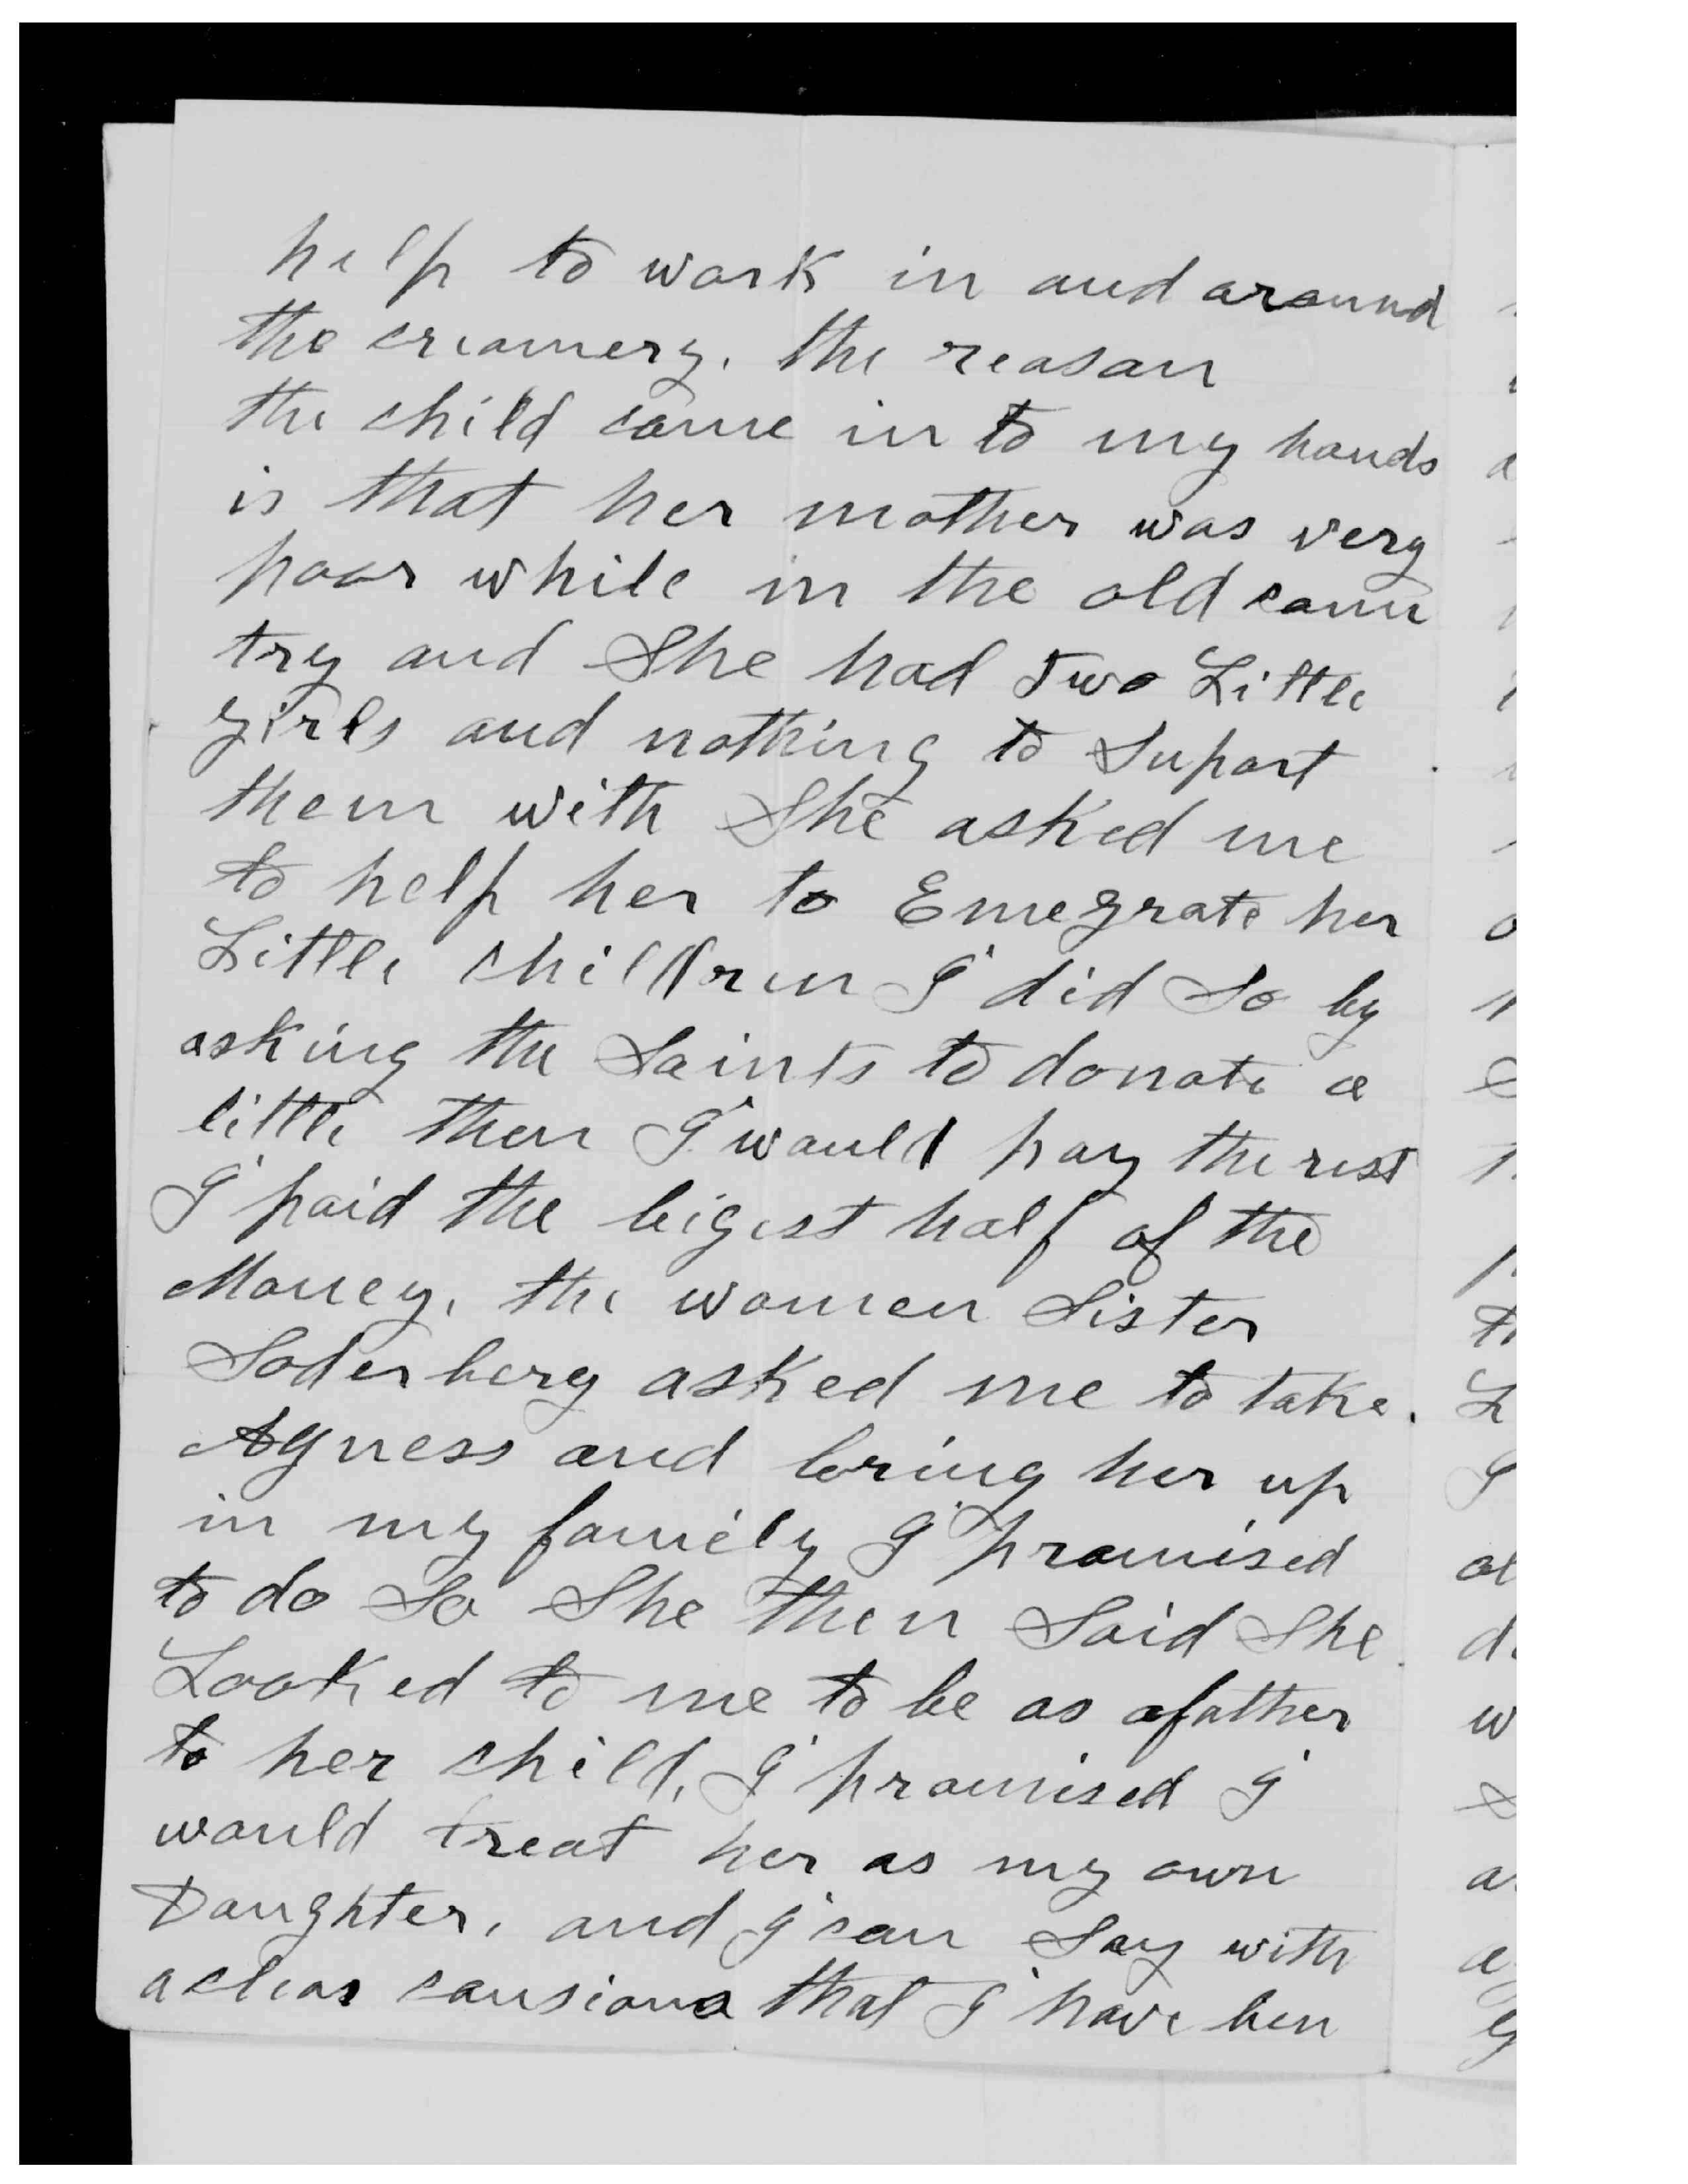 help to work in and around
the creamery. the reason
the child came in to my hands
is that her mother was very
poor while in the old coun
try and She had Two Little
girls and nothing to Suport
them with She asked me
to help her to Emegrate her
Little children I did So by
asking the Saints to donate a
little then I would pay the rest
I paid the bigest half of the
Money, the women Sister
Soderberg asked me to take.
Agness and bring her up
in my family I promised
to do So She then Said She
Looked to me to be as a father
to her child, I promised I
would treat her as my own
Daughter, and I can Say with
a clear that I have ben